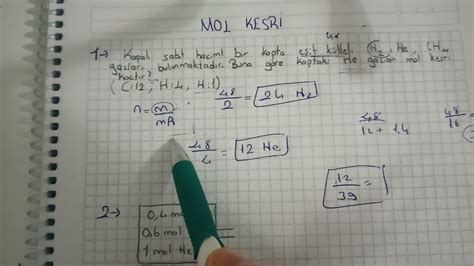 MOL KESRİ
1→ Kapalı sabit hacimli bir kapta eşit kütleli H₂, He, CH₄
gazları bulunmaktadır. Buna göre kaptaki He gazının mol kesri
kaçtır?
(C:12, H:4, H:1)
n = m/mA
48/2 = 24 H₂
48/4 = 12 He
48/12 + 1.4
48/16
12/39 =
2→
0,4 mol
0,6 mol
1 mol He